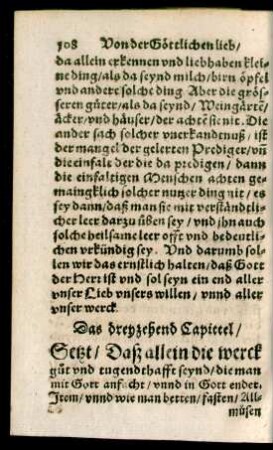 108 Von der Göttlichen lieb/
da allein erkennen vnd liebhaben klei-
ne ding/ als da seynd milch/ birn öpfel
vnd andere solche ding Aber die grös-
seren güter/ als da seynd/ Weingärtẽ/
äcker/ vnd häuser/ der achtẽ sie nit. Die
ander sach solcher vnerkandtnuß/ ist
der mangel der gelerten Prediger/ vñ
die einfalt der die da predigen/ dann
die einfaltigen Menschen achten ge-
maingklich solcher nutzer ding nit/ es
sey dann/ daß man sie mit verständtli-
cher leer darzu üben sey/ vnd jhn auch
solche heilsame leer offt vnd bedeutli-
chen vrkündig sey. Vnd darumb sol-
len wir das ernstlich halten/ daß Gott
der Herr ist vnd sol seyn ein end aller
vnser Lieb vnsers willen/ vnnd aller
vnser werck.
Das dreyzehend Capittel/
Setzt/ Daß allein die werck
güt vnd tugendthafft seynd/ die man
mit Gott anfacht/ vnnd in Gott endet.
Item/ vnnd wie man betten/ fasten/ All-
müsen